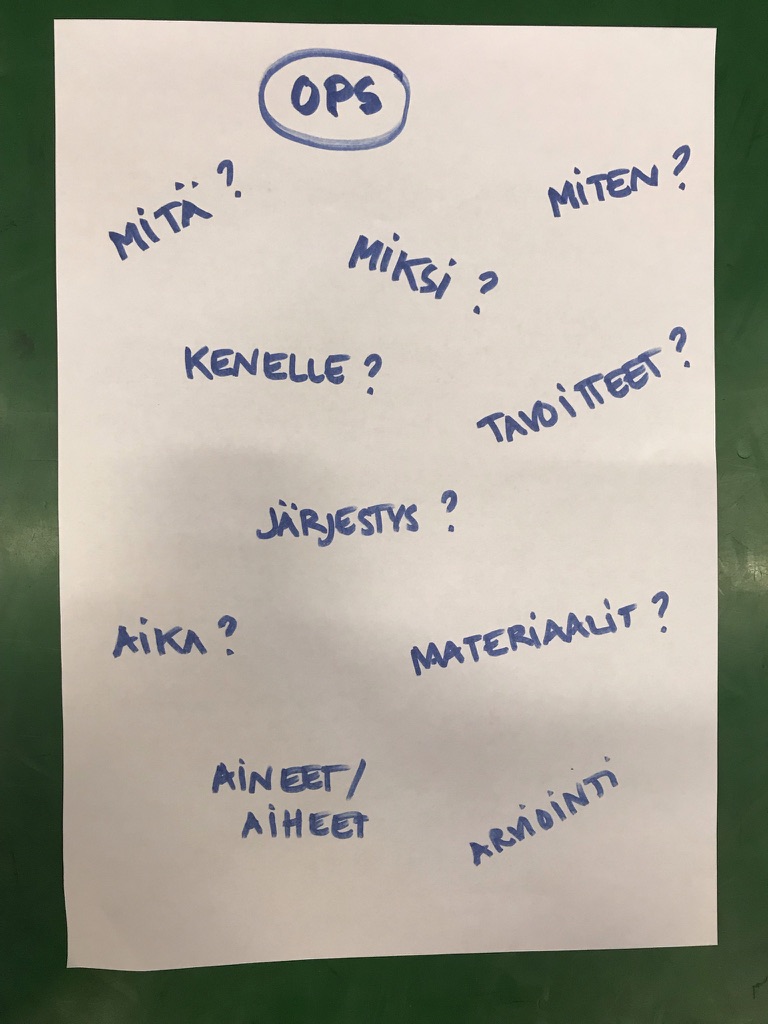 OPS
MITÄ?
MITEN?
MIKSI?
KENELLE?
TAVOITTEET?
JÄRJESTYS?
AIKA?
MATERIAALIT?
AINEET/
AIHEET
ARVIOINTI